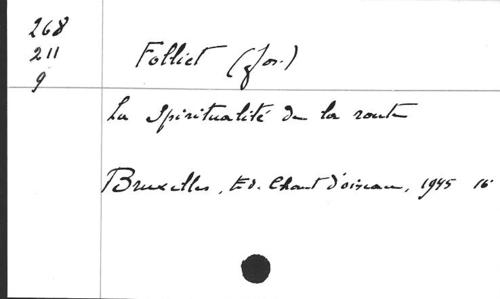 268
211
9
Folliet (Jos.)
La Spiritualité de la route
Bruxelles, Ed. Chant d'oiseau, 1945 16